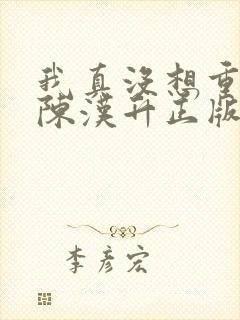 我真沒想重
陳漢升正版
李彥宏